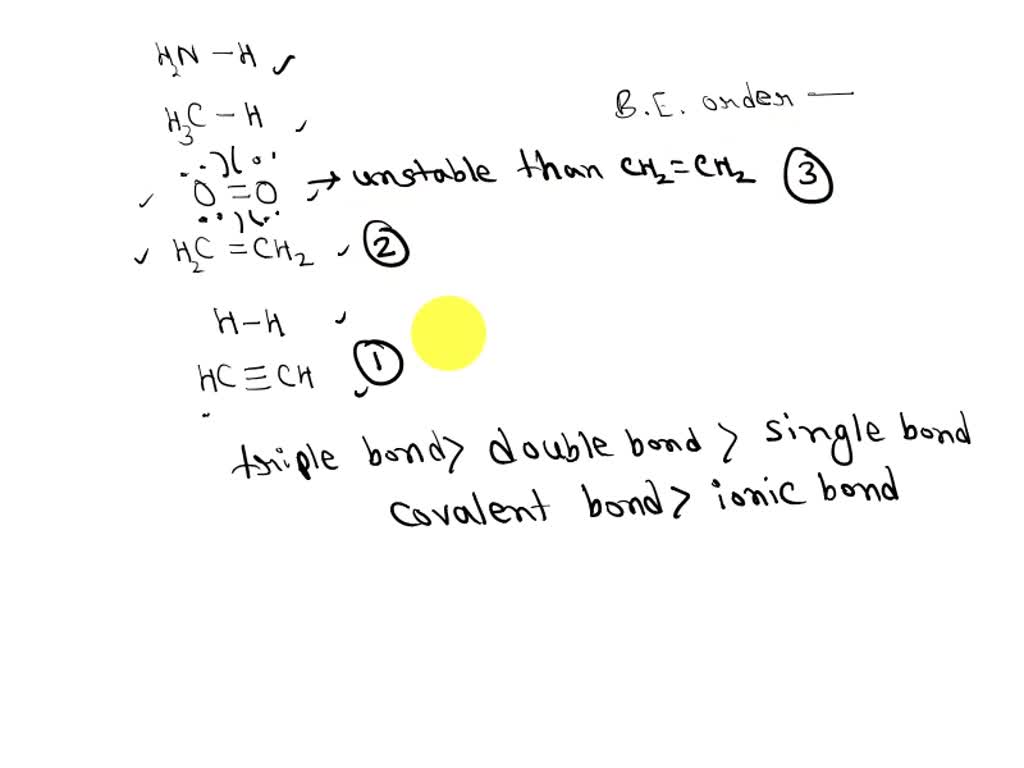 H₂N – H ✓
B.E. order —
H₃C – H ✓
✓ O = O → unstable than CH₂=CH₂ ③
✓ H₂C = CH₂ ✓ ②
H – H ✓
HC ≡ CH ✓ ①
triple bond > double bond > single bond
covalent bond > ionic bond